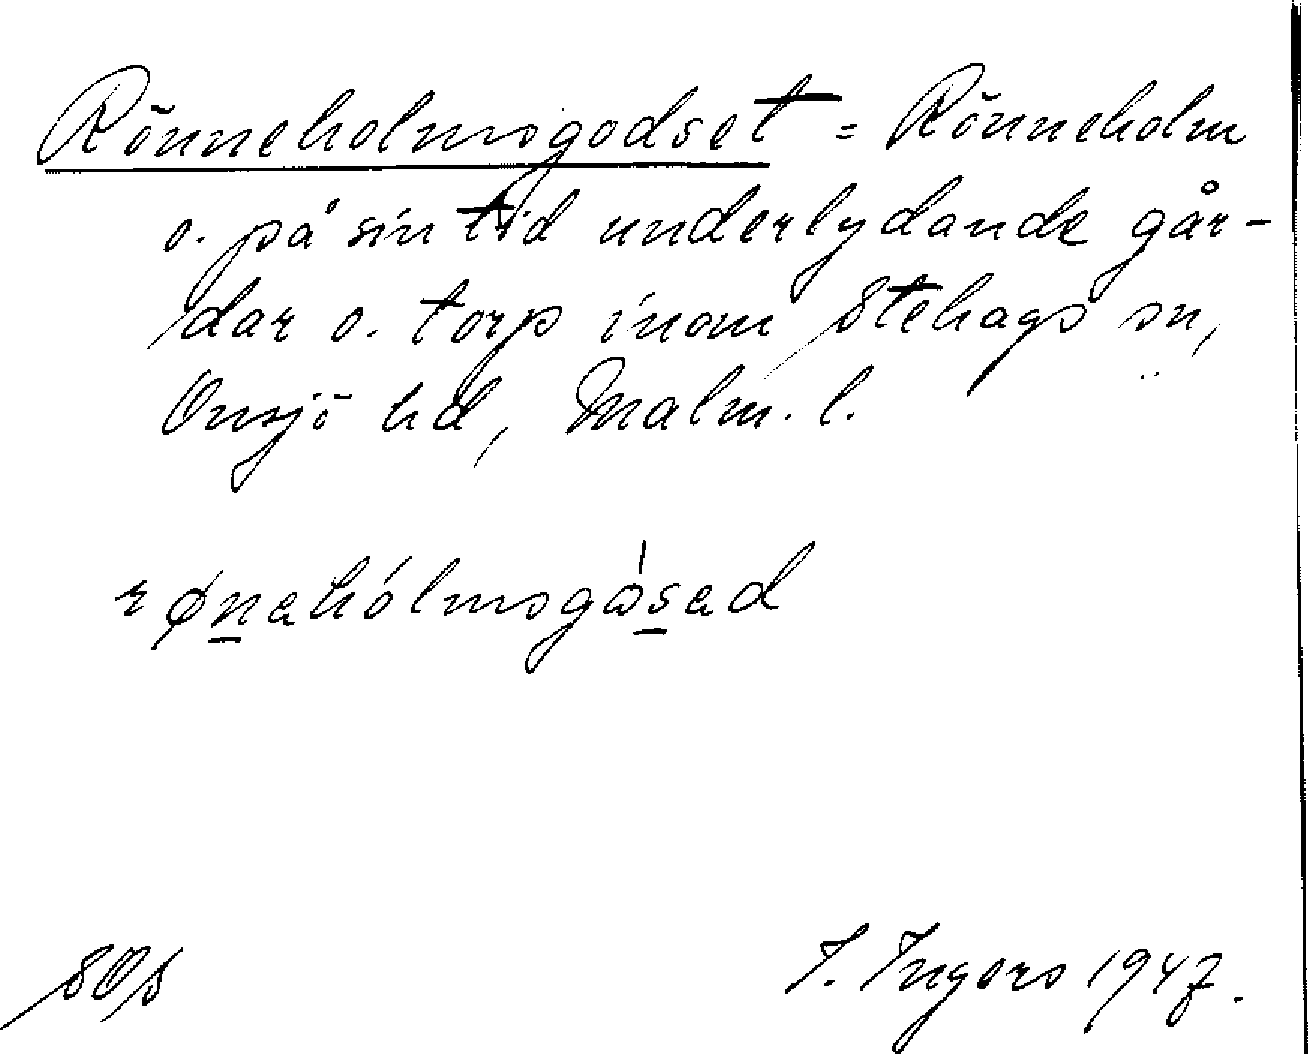 Rönneholmsgodset = Rönneholm
o. på sin tid underlydande går-
dar o. torp inom Stehags sn,
Onsjö hd, Malm. l.
rønahólmsgωsad
SOS
I. Ingers 1947.